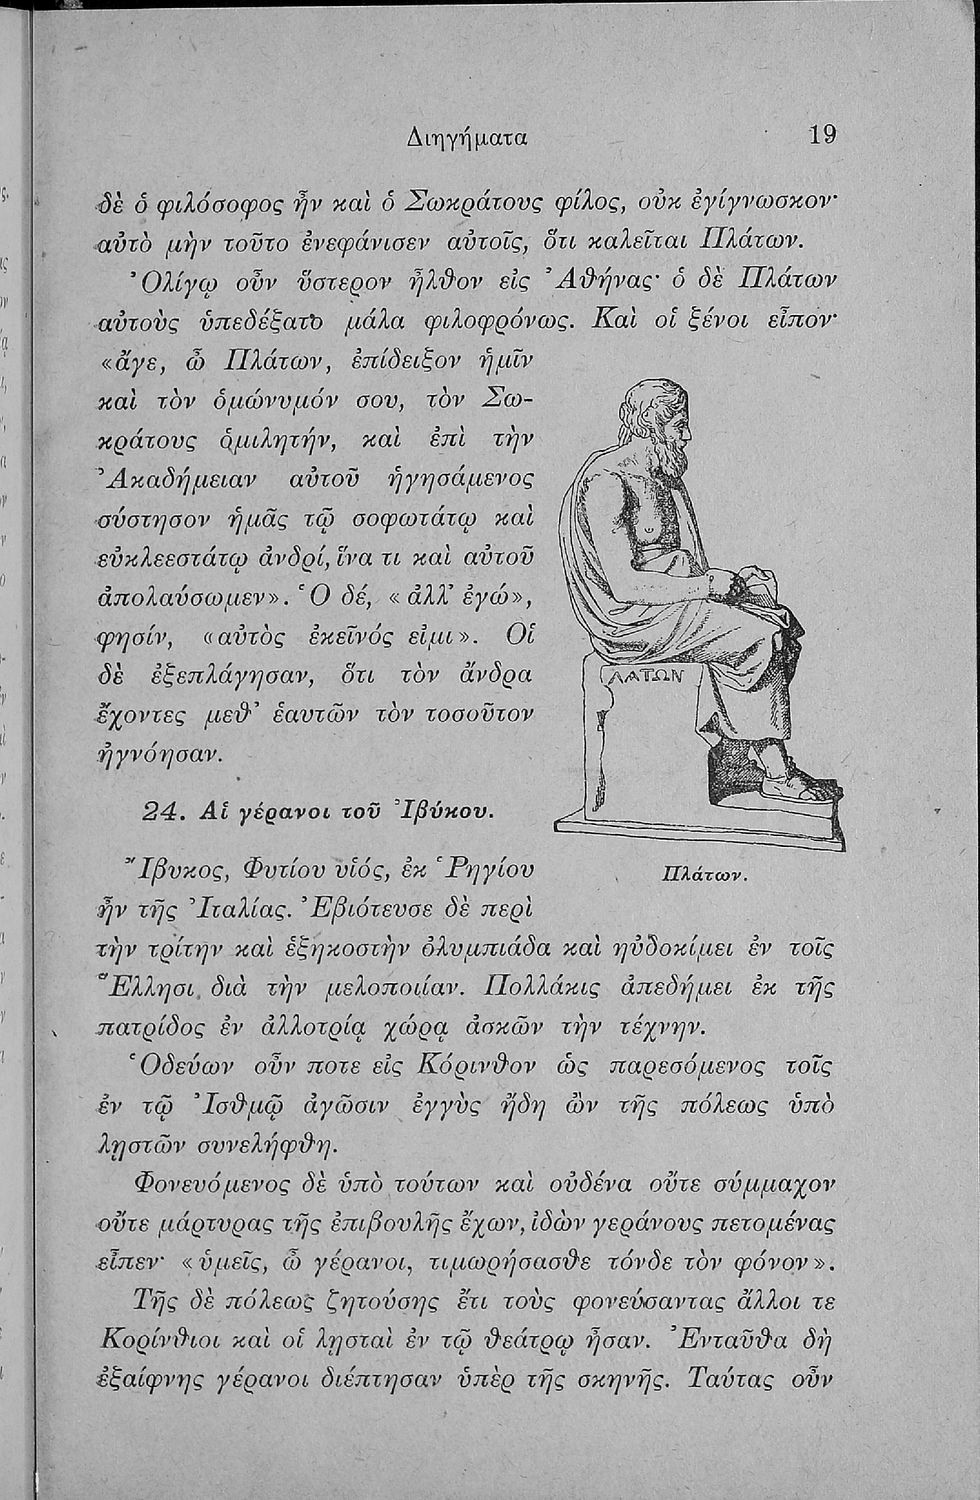 Διηγήματα 19
δὲ ὁ φιλόσοφος ἦν καὶ ὁ Σωκράτους φίλος, οὐκ ἐγίγνωσκον·
αὐτὸ μὴν τοῦτο ἐνεφάνισεν αὐτοῖς, ὅτι καλεῖται Πλάτων.
Ὀλίγῳ οὖν ὕστερον ἦλθον εἰς Ἀθήνας· ὁ δὲ Πλάτων
αὐτοὺς ὑπεδέξατο μάλα φιλοφρόνως. Καὶ οἱ ξένοι εἶπον·
«ἄγε, ὦ Πλάτων, ἐπίδειξον ἡμῖν
καὶ τὸν ὁμώνυμόν σου, τὸν Σω-
κράτους ὁμιλητήν, καὶ ἐπὶ τὴν
Ἀκαδήμειαν αὐτοῦ ἡγησάμενος
σύστησον ἡμᾶς τῷ σοφωτάτῳ καὶ
εὐκλεεστάτῳ ἀνδρί, ἵνα τι καὶ αὐτοῦ
ἀπολαύσωμεν». Ὁ δέ, «ἀλλ' ἐγώ»,
φησίν, «αὐτὸς ἐκεῖνός εἰμι». Οἱ
δὲ ἐξεπλάγησαν, ὅτι τὸν ἄνδρα
ἔχοντες μεθ' ἑαυτῶν τὸν τοσοῦτον
ἠγνόησαν.
ΛΑΤΩΝ
Πλάτων.
24. Αἱ γέρανοι τοῦ Ἰβύκου.
Ἴβυκος, Φυτίου υἱός, ἐκ Ῥηγίου
ἦν τῆς Ἰταλίας. Ἐβιότευσε δὲ περὶ
τὴν τρίτην καὶ ἑξηκοστὴν ὀλυμπιάδα καὶ ηὐδοκίμει ἐν τοῖς
Ἕλλησι διὰ τὴν μελοποιίαν. Πολλάκις ἀπεδήμει ἐκ τῆς
πατρίδος ἐν ἀλλοτρίᾳ χώρᾳ ἀσκῶν τὴν τέχνην.
Ὁδεύων οὖν ποτε εἰς Κόρινθον ὡς παρεσόμενος τοῖς
ἐν τῷ Ἰσθμῷ ἀγῶσιν ἐγγὺς ἤδη ὢν τῆς πόλεως ὑπὸ
λῃστῶν συνελήφθη.
Φονευόμενος δὲ ὑπὸ τούτων καὶ οὐδένα οὔτε σύμμαχον
οὔτε μάρτυρας τῆς ἐπιβουλῆς ἔχων, ἰδὼν γεράνους πετομένας
εἶπεν· «ὑμεῖς, ὦ γέρανοι, τιμωρήσασθε τόνδε τὸν φόνον».
Τῆς δὲ πόλεως ζητούσης ἔτι τοὺς φονεύσαντας ἄλλοι τε
Κορίνθιοι καὶ οἱ λῃσταὶ ἐν τῷ θεάτρῳ ἦσαν. Ἐνταῦθα δὴ
ἐξαίφνης γέρανοι διέπτησαν ὑπὲρ τῆς σκηνῆς. Ταύτας οὖν